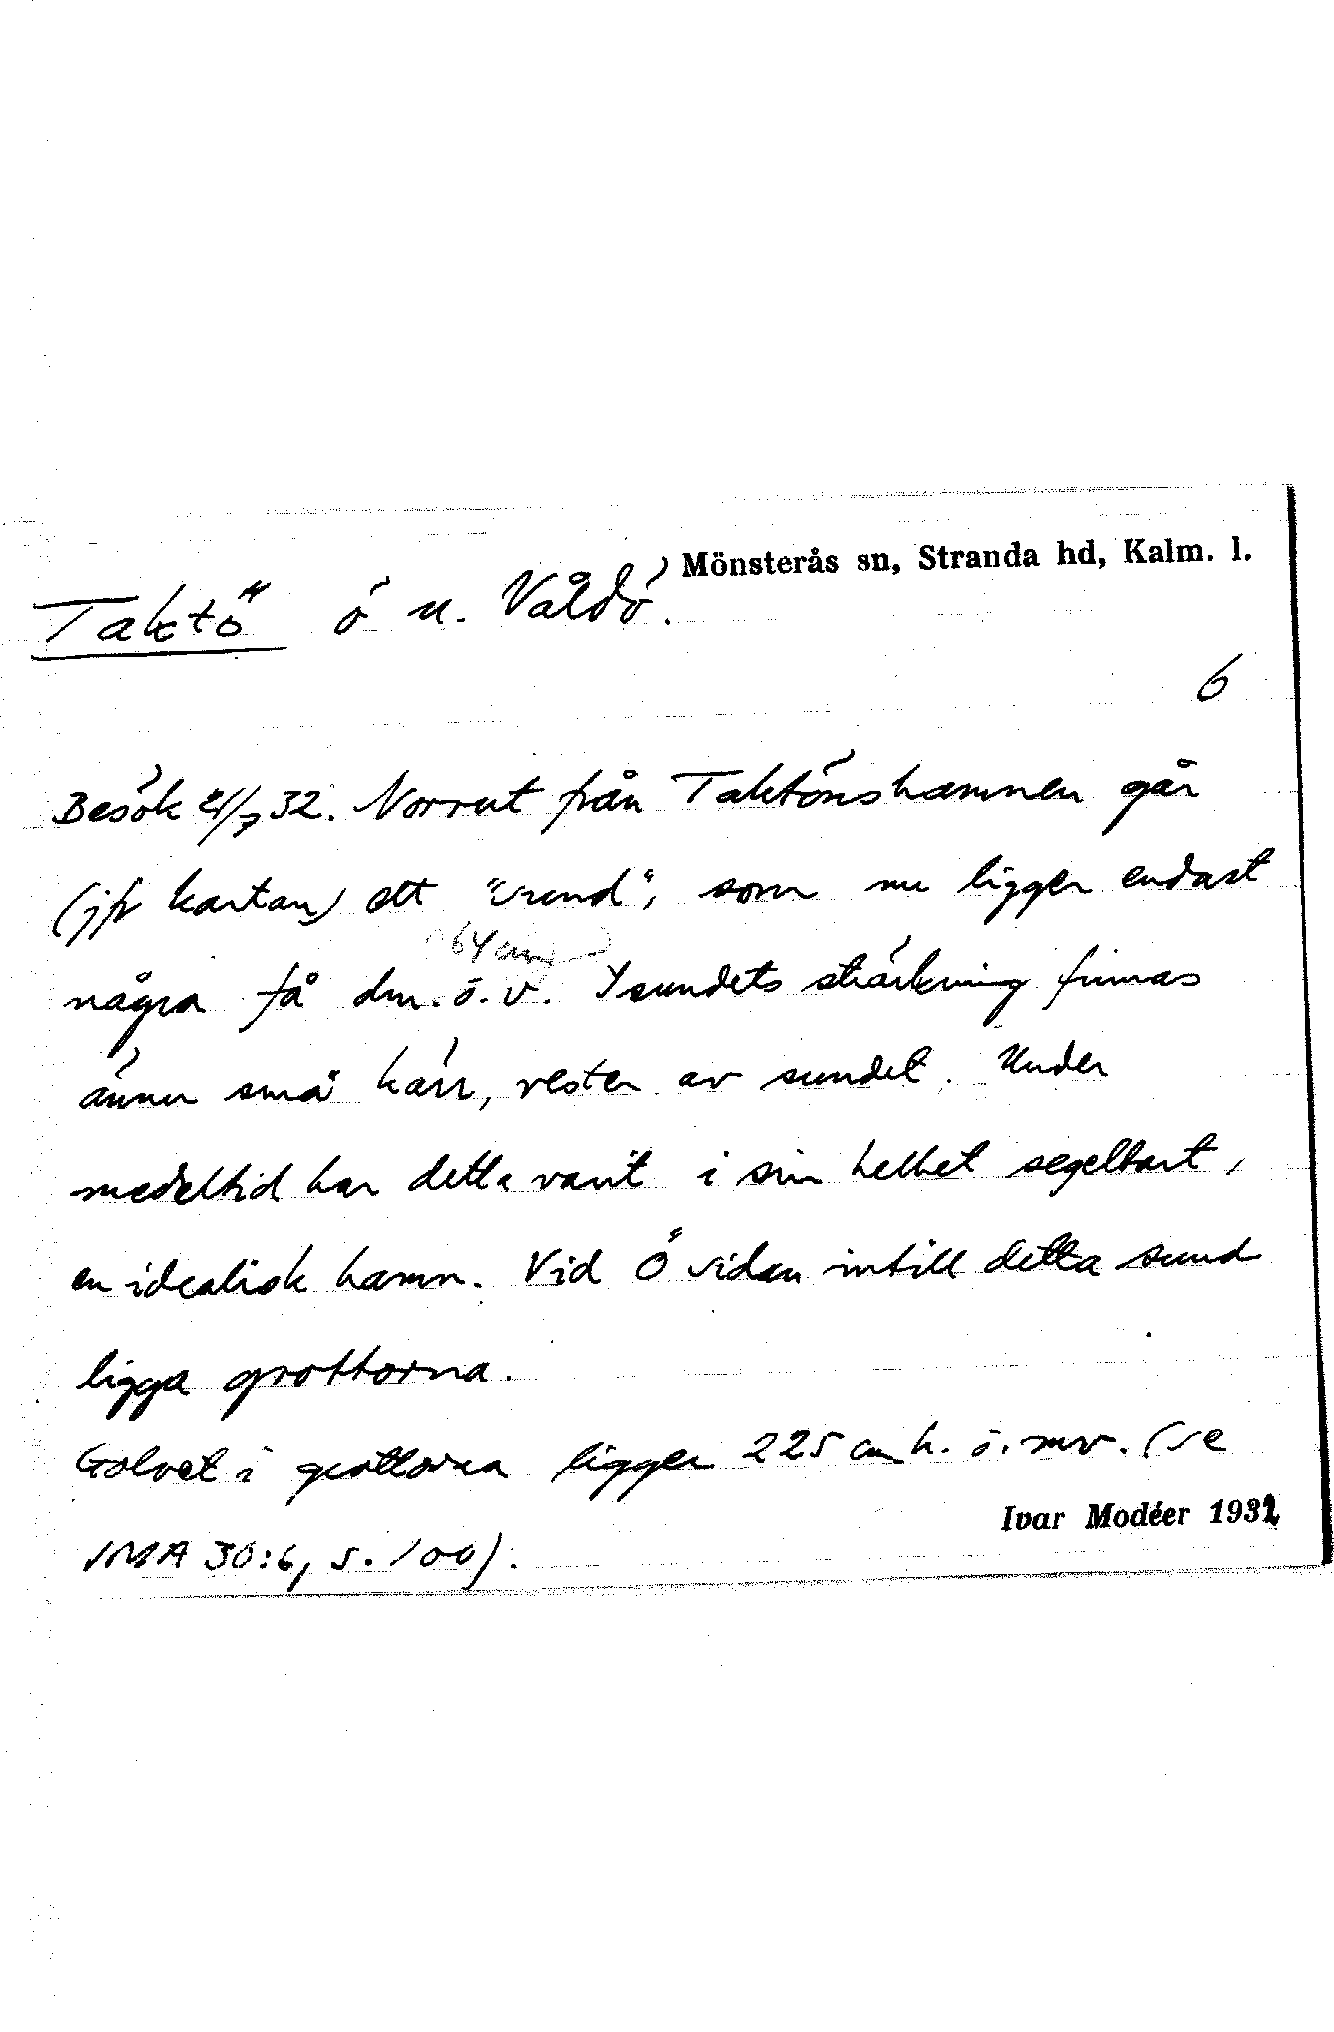 Mönsterås sn, Stranda hd, Kalm. l.
Taktö ö u. Våldö.
6
Besök 21/7 32. Norrut från Taktönshamnen går
(jfr kartan) ett "sund", som nu ligger endast
64 cm
några få dm. ö. v. I sundets sträckning finnas
ännu små kärr, rester av sundet. Under
medeltid har detta varit i sin helhet segelbart,
en idealisk hamn. Vid Ö sidan intill detta sund
ligga grottorna.
Golvet i grottorna ligger 225 cm h. ö. mv. (se
IMA 30:6, s. 100).
Ivar Modéer 1932